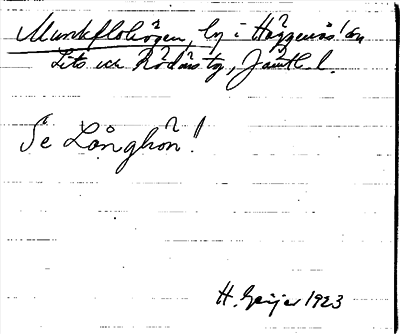 Munkflohögen, by i Häggenås' sn
Lits och Rödöns tg, Jämtl. l.
Se Långhön!
H. Geijer 1923